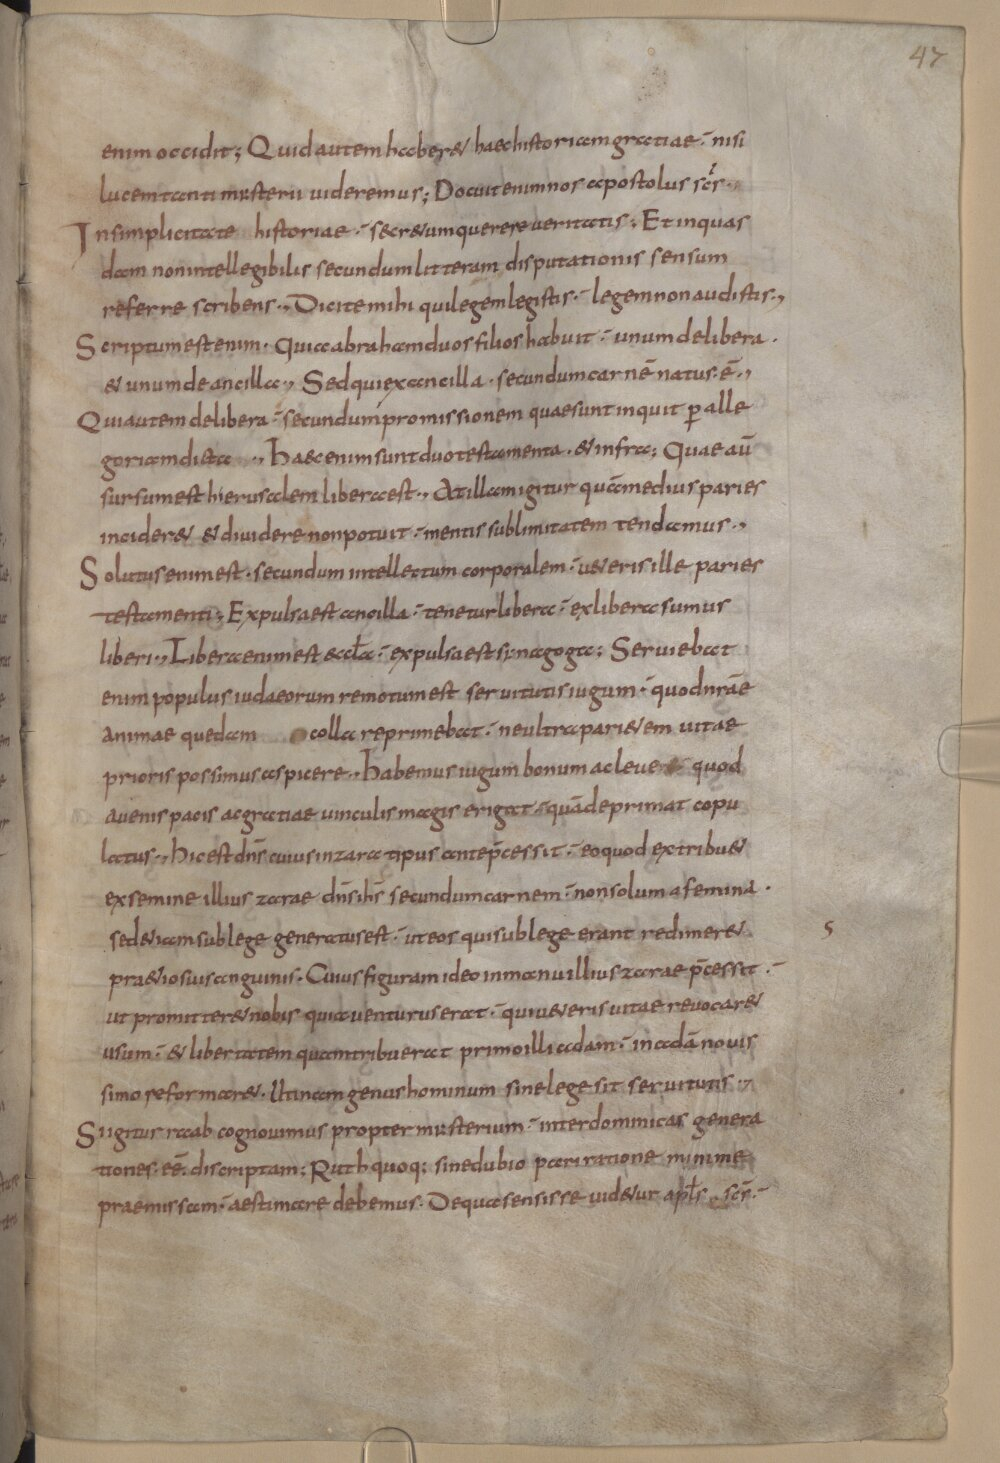 47
enim occidit; Quid autem haber& haec historiam gratiae·- nisi
lucem tanti mysterii uideremus; Docuit enim nos apostolus scs̄·
In simplicitate historiae·- secr&um querere ueritatis; Et in quas
dam non intellegibilis secundum litteram disputationis sensum
referre scribens·, Dicite mihi qui legem legistis·- legem non audistis·,
Scriptum est enim· Quia abraham duos filios habuit·- unum de libera·
& unum de ancilla·, Sed qui ex ancilla· secundum carnē natus·ē·,
Qui autem de libera·- secundum promissionem quae sunt inquit ꝑ alle
goriam dicta·, Haec enim sunt duo testamenta· & infra; Quae aū
sursum est hierusalem libera est·, At illam igitur quā medius paries
incider& & diuidere non potuit·- mentis sublimitatem tendamus·,
Solutus enim est· secundum intellectum corporalem·- u&eris ille paries
testamenti; Expulsa est ancilla·- tenetur libera·- ex libera sumus
liberi·, Libera enim est eccła·- expulsa est synagoga; Seruiebat
enim populus iudaeorum remotum est seruitutis iugum·- quod nrāe
animae quedam colla reprimebat·- ne ultra pari&em uitae
prioris possimus aspicere·, Habemus iugum bonum ac leue quod
auenis pacis ac gratiae uinculis magis erigat·- quā deprimat copu
latus·, Hic est dn̄s cuius in zara tipus antep̄cessit·- eo quod ex tribu &
ex semine illius zarae dn̄s ih̄s secundum carnem·- non solum a femina·
sed &iam sub lege generatus est·- ut eos qui sub lege erant redimer&
pr&ioso suo sanguinis· Cuius figuram ideo in manu illius zarae p̄cessit·-
ut promitter& nobis quia uenturus erat·- qui u&eris uitae reuocar&
usum·- & libertatem quam tribuerat primo illi adam·- in adā nouis
simo reformar&· Utinam genus hominum sine lege sit seruitutis·,
Si igitur raab cognouimus propter mysterium·- inter dominicas genera
tiones·eē· discriptam; Ruth quoq; sine dubio pari ratione minime
praemissam·- aestimare debemus· De qua sensisse uid&ur apłs scs̄·-